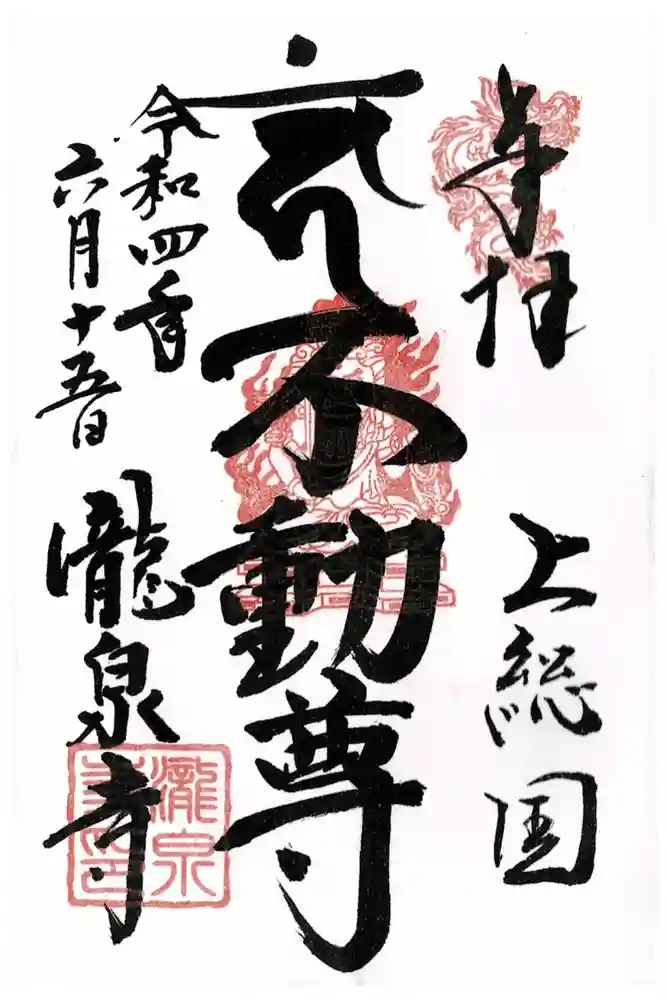 奉拝
上総国
不動尊
令和四年
六月十五日
瀧泉寺
瀧泉
寺印